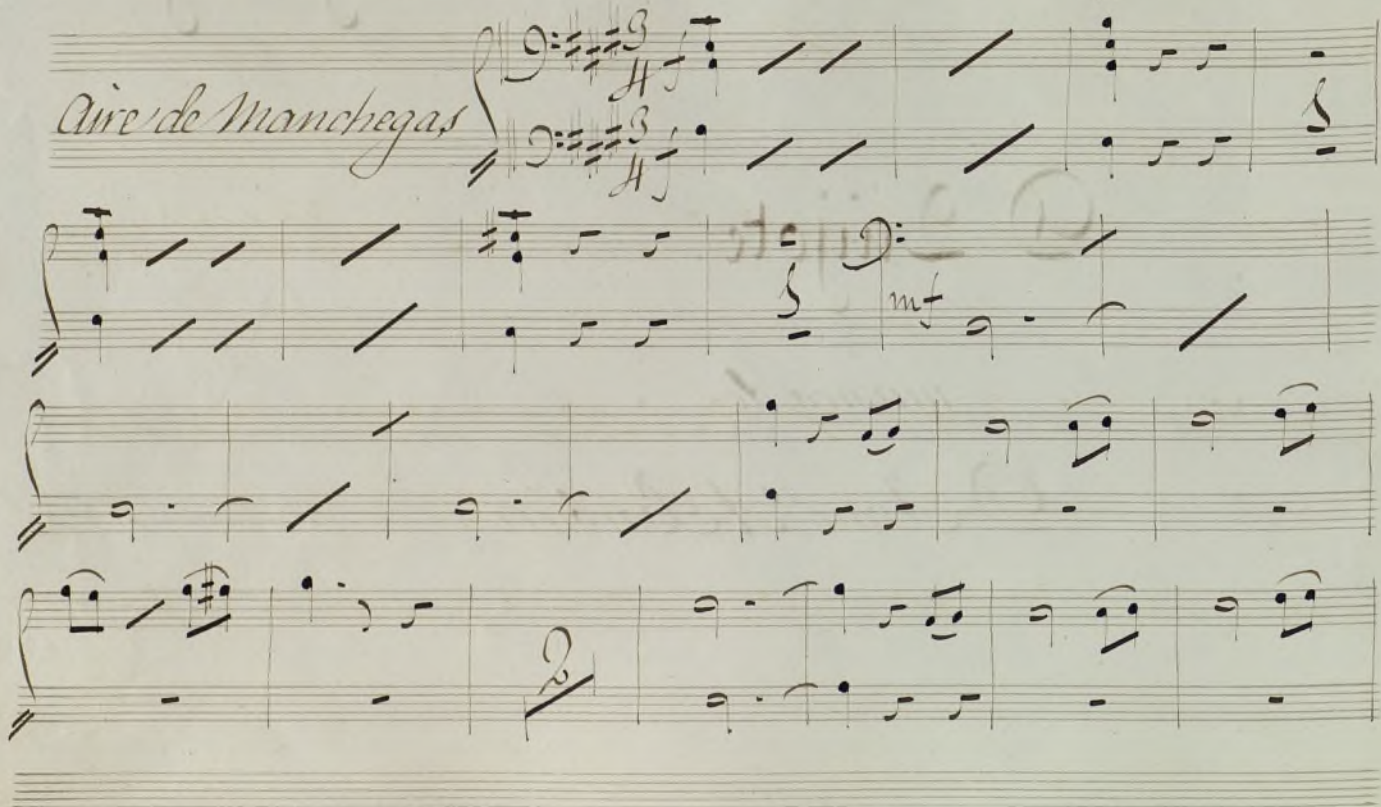 Aire de Manchegas
3
4 f
3
4 f
mf
2